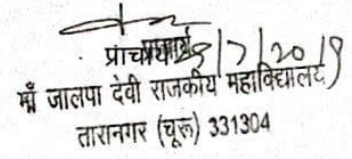 प्राचार्य 25/7/2019
माँ जालपा देवी राजकीय महाविद्यालय
तारानगर (चूरू) 331304